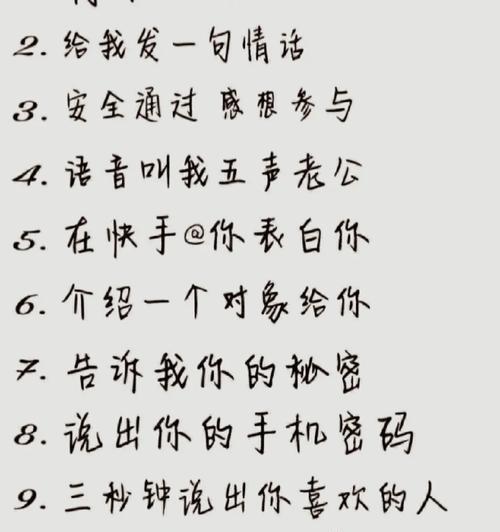 2. 给我发一句情话
3. 安全通过 感想参与
4. 语音叫我五声老公
5. 在快手@你表白你
6. 介绍一个对象给你
7. 告诉我你的秘密
8. 说出你的手机密码
9. 三秒钟说出你喜欢的人